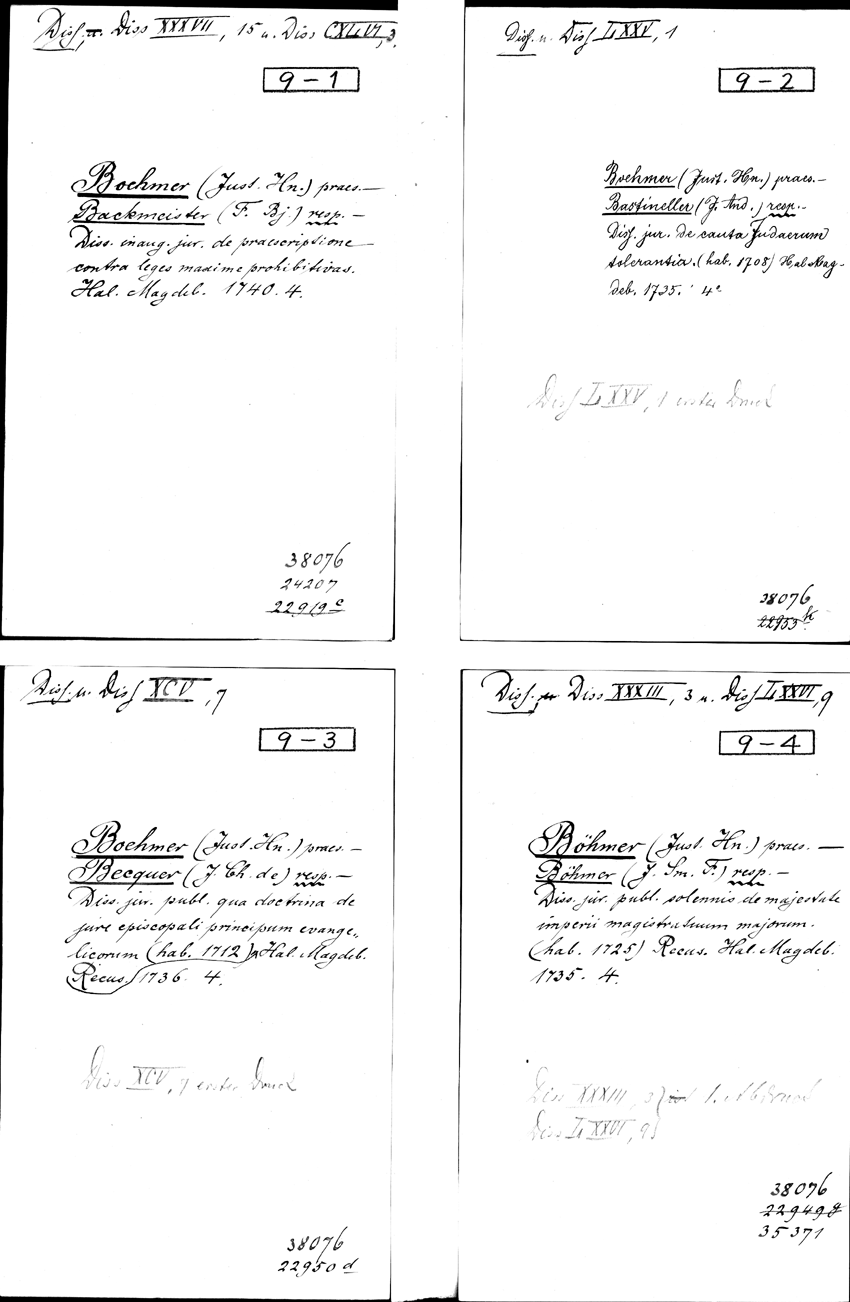 Diss. u. Diss XXXVII, 15 u. Diss CXLVI, 3.
9-1
Boehmer (Just. Hn.) praes.—
Backmeister (F. Bj.) resp.—
Diss. inaug. jur. de praescriptione
contra leges maxime prohibitivas.
Hal. Magdeb. 1740. 4.
38076
24207
22919c
Diss. u. Diss LXXV, 1
9-2
Boehmer (Just. Hn.) praes.—
Bastineller (J. And.) resp.—
Diss. jur. de cauta Judaeorum
tolerantia. (hab. 1708) Hal Mag-
deb. 1735. 4°
Diss LXXV, 1 erster Druck
38076
22953k
Diss. u. Diss XCV, 7
9-3
Boehmer (Just. Hn.) praes.—
Becquer (J. Ch. de) resp.—
Diss. jur. publ. qua doctrina de
jure episcopali principum evange-
licorum (hab. 1712) Hal. Magdeb.
Recus. 1736. 4.
Diss XCV, 7 erster Druck
38076
22950d
Diss. u. Diss XXXIII, 3 u. Diss LXXVI, 9
9-4
Böhmer (Just. Hn.) praes.—
Böhmer (J. Sm. F.) resp.—
Diss. jur. publ. solennis de majestate
imperii magistratuum majorum.
(hab. 1725) Recus. Hal. Magdeb.
1735. 4.
Diss XXXIII, 3) ist 1. Abdruck
Diss LXXVI, 9)
38076
22949g
35371